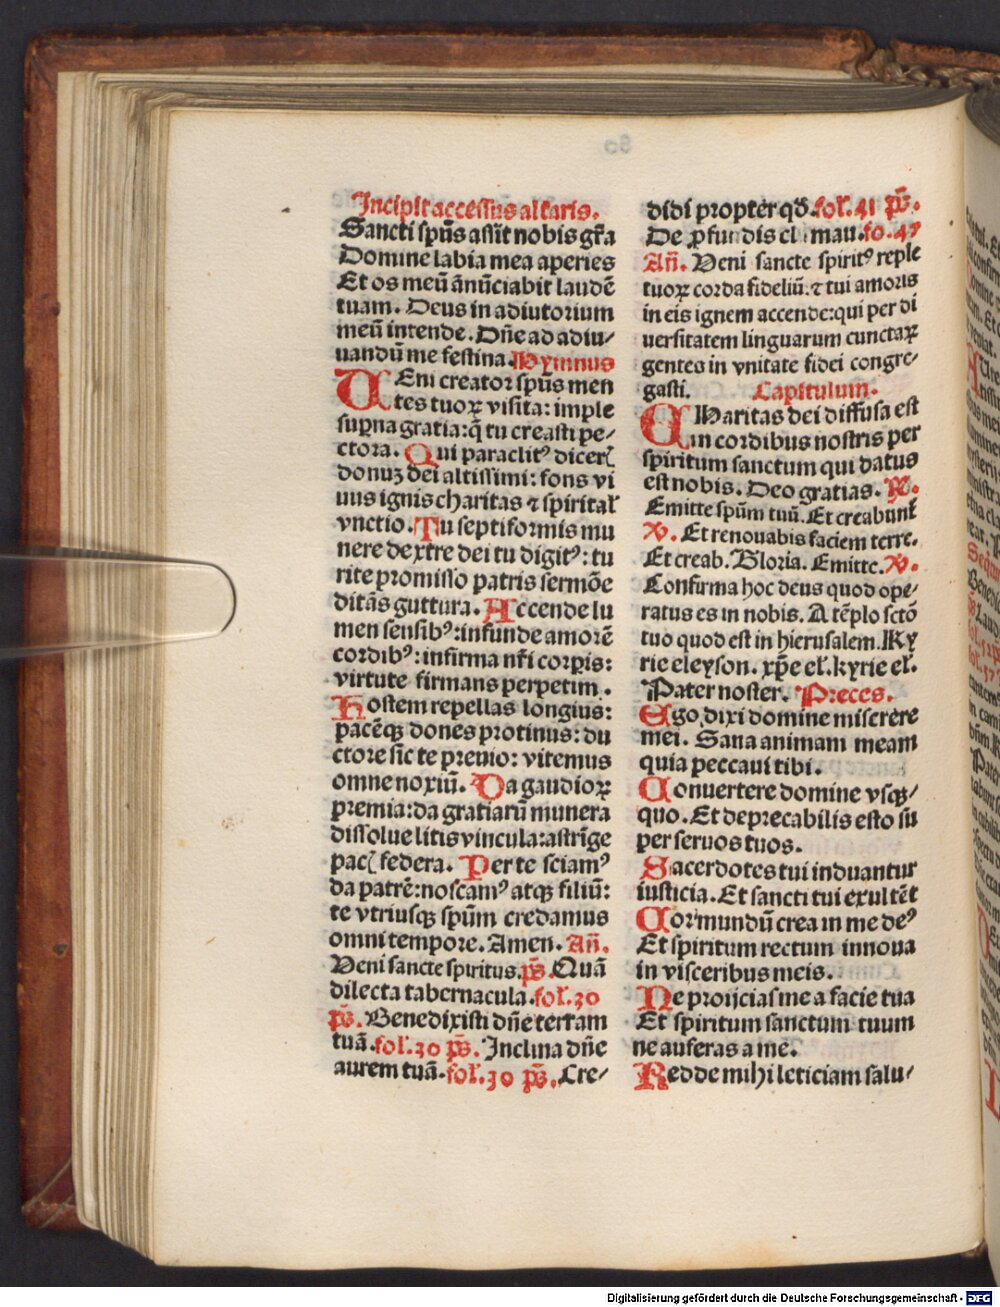 Incipit accessus altaris.
Sancti spūs assit nobis gr̄a
Domine labia mea aperies
Et os meū ānūciabit laudē
tuam. Deus in adiutorium
meū intende. Dn̄e ad adiu⸗
uandū me festina. Hymnus
VEni creator spūs men
tes tuoꝝ visita: imple
sup̄na gratia: q̄ tu creasti pe⸗
ctora. Qui paraclitꝰ dicerꝭ
donuꝫ dei altissimi: fons vi
uus ignis charitas ⁊ spiritaƚ
vnctio. Tu septiformis mu
nere dextre dei tu digitꝰ: tu
rite promisso patris sermōe
ditās guttura. Accende lu
men sensibꝰ: infunde amorē
cordibꝰ: infirma nr̄i corꝑis:
virtute firmans perpetim.
Hostem repellas longius:
pacēqꝫ dones protinus: du
ctore sic te preuio: vitemus
omne noxiū. Da gaudioꝝ
premia: da gratiarū munera
dissolue litis vincula: astrīge
pacꝭ federa. Per te sciamꝰ
da patrē: noscamꝰ atqꝫ filiū:
te vtriusqꝫ spūm credamus
omni tempore. Amen. An̄.
Veni sancte spiritus. ps̄. Quā
dilecta tabernacula. foƚ. 30
ps̄. Benedixisti dn̄e terram
tuā. foƚ. 30 ps̄. Inclina dn̄e
aurem tuā. foƚ. 30 ps̄. Cre⸗
didi propter qđ. foƚ. 41 ps̄.
De ꝓfundis clamau. fo. 47
An̄. Veni sancte spiritꝰ reple
tuoꝝ corda fideliū. ⁊ tui amoris
in eis ignem accende: qui per di
uersitatem linguarum cunctaꝝ
gentes in vnitate fidei congre⸗
gasti. Capitulum.
CHaritas dei diffusa est
in cordibus nostris per
spiritum sanctum qui datus
est nobis. Deo gratias. ℟.
Emitte spūm tuū. Et creabunt̄
℣. Et renouabis faciem terre.
Et creab. Gloria. Emitte. ℣.
Confirma hoc deus quod ope⸗
ratus es in nobis. A tēplo sctō
tuo quod est in hierusalem. Ky
rie eleyson. xp̄e eƚ. kyrie eƚ.
Pater noster. Preces.
Ego dixi domine miserere
mei. Sana animam meam
quia peccaui tibi.
Conuertere domine vsqꝫ⸗
quo. Et deprecabilis esto sū
per seruos tuos.
Sacerdotes tui induantur
iusticia. Et sancti tui exultēt
Cor mundū crea in me deꝰ
Et spiritum rectum innoua
in visceribus meis.
Ne proijcias me a facie tua
Et spiritum sanctum tuum
ne auferas a me.
Redde mihi leticiam salu⸗
Digitalisierung gefördert durch die Deutsche Forschungsgemeinschaft - DFG